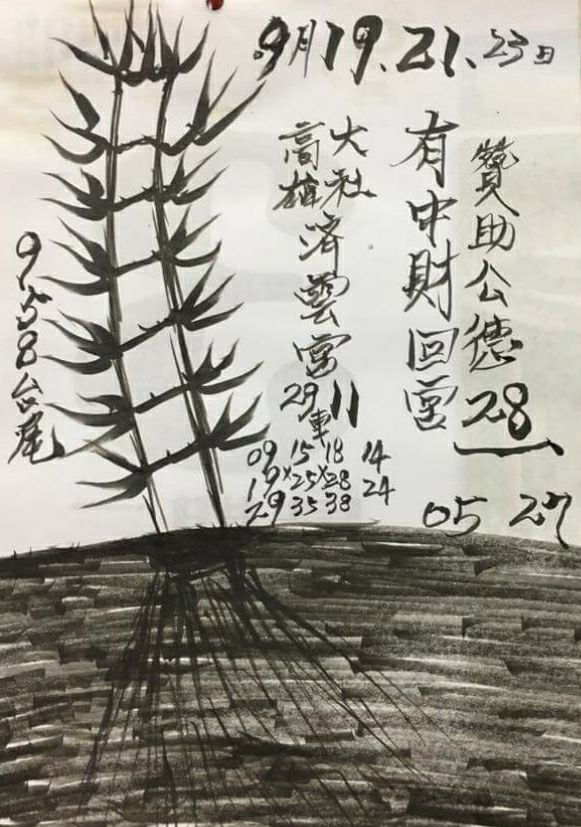 9月19.21.23日
贊助公德28
有中財回宮
05 27
大社
高雄
済雲宮
29車11
09 15 18 14
19×25×28 24
29 35 38
958台尾